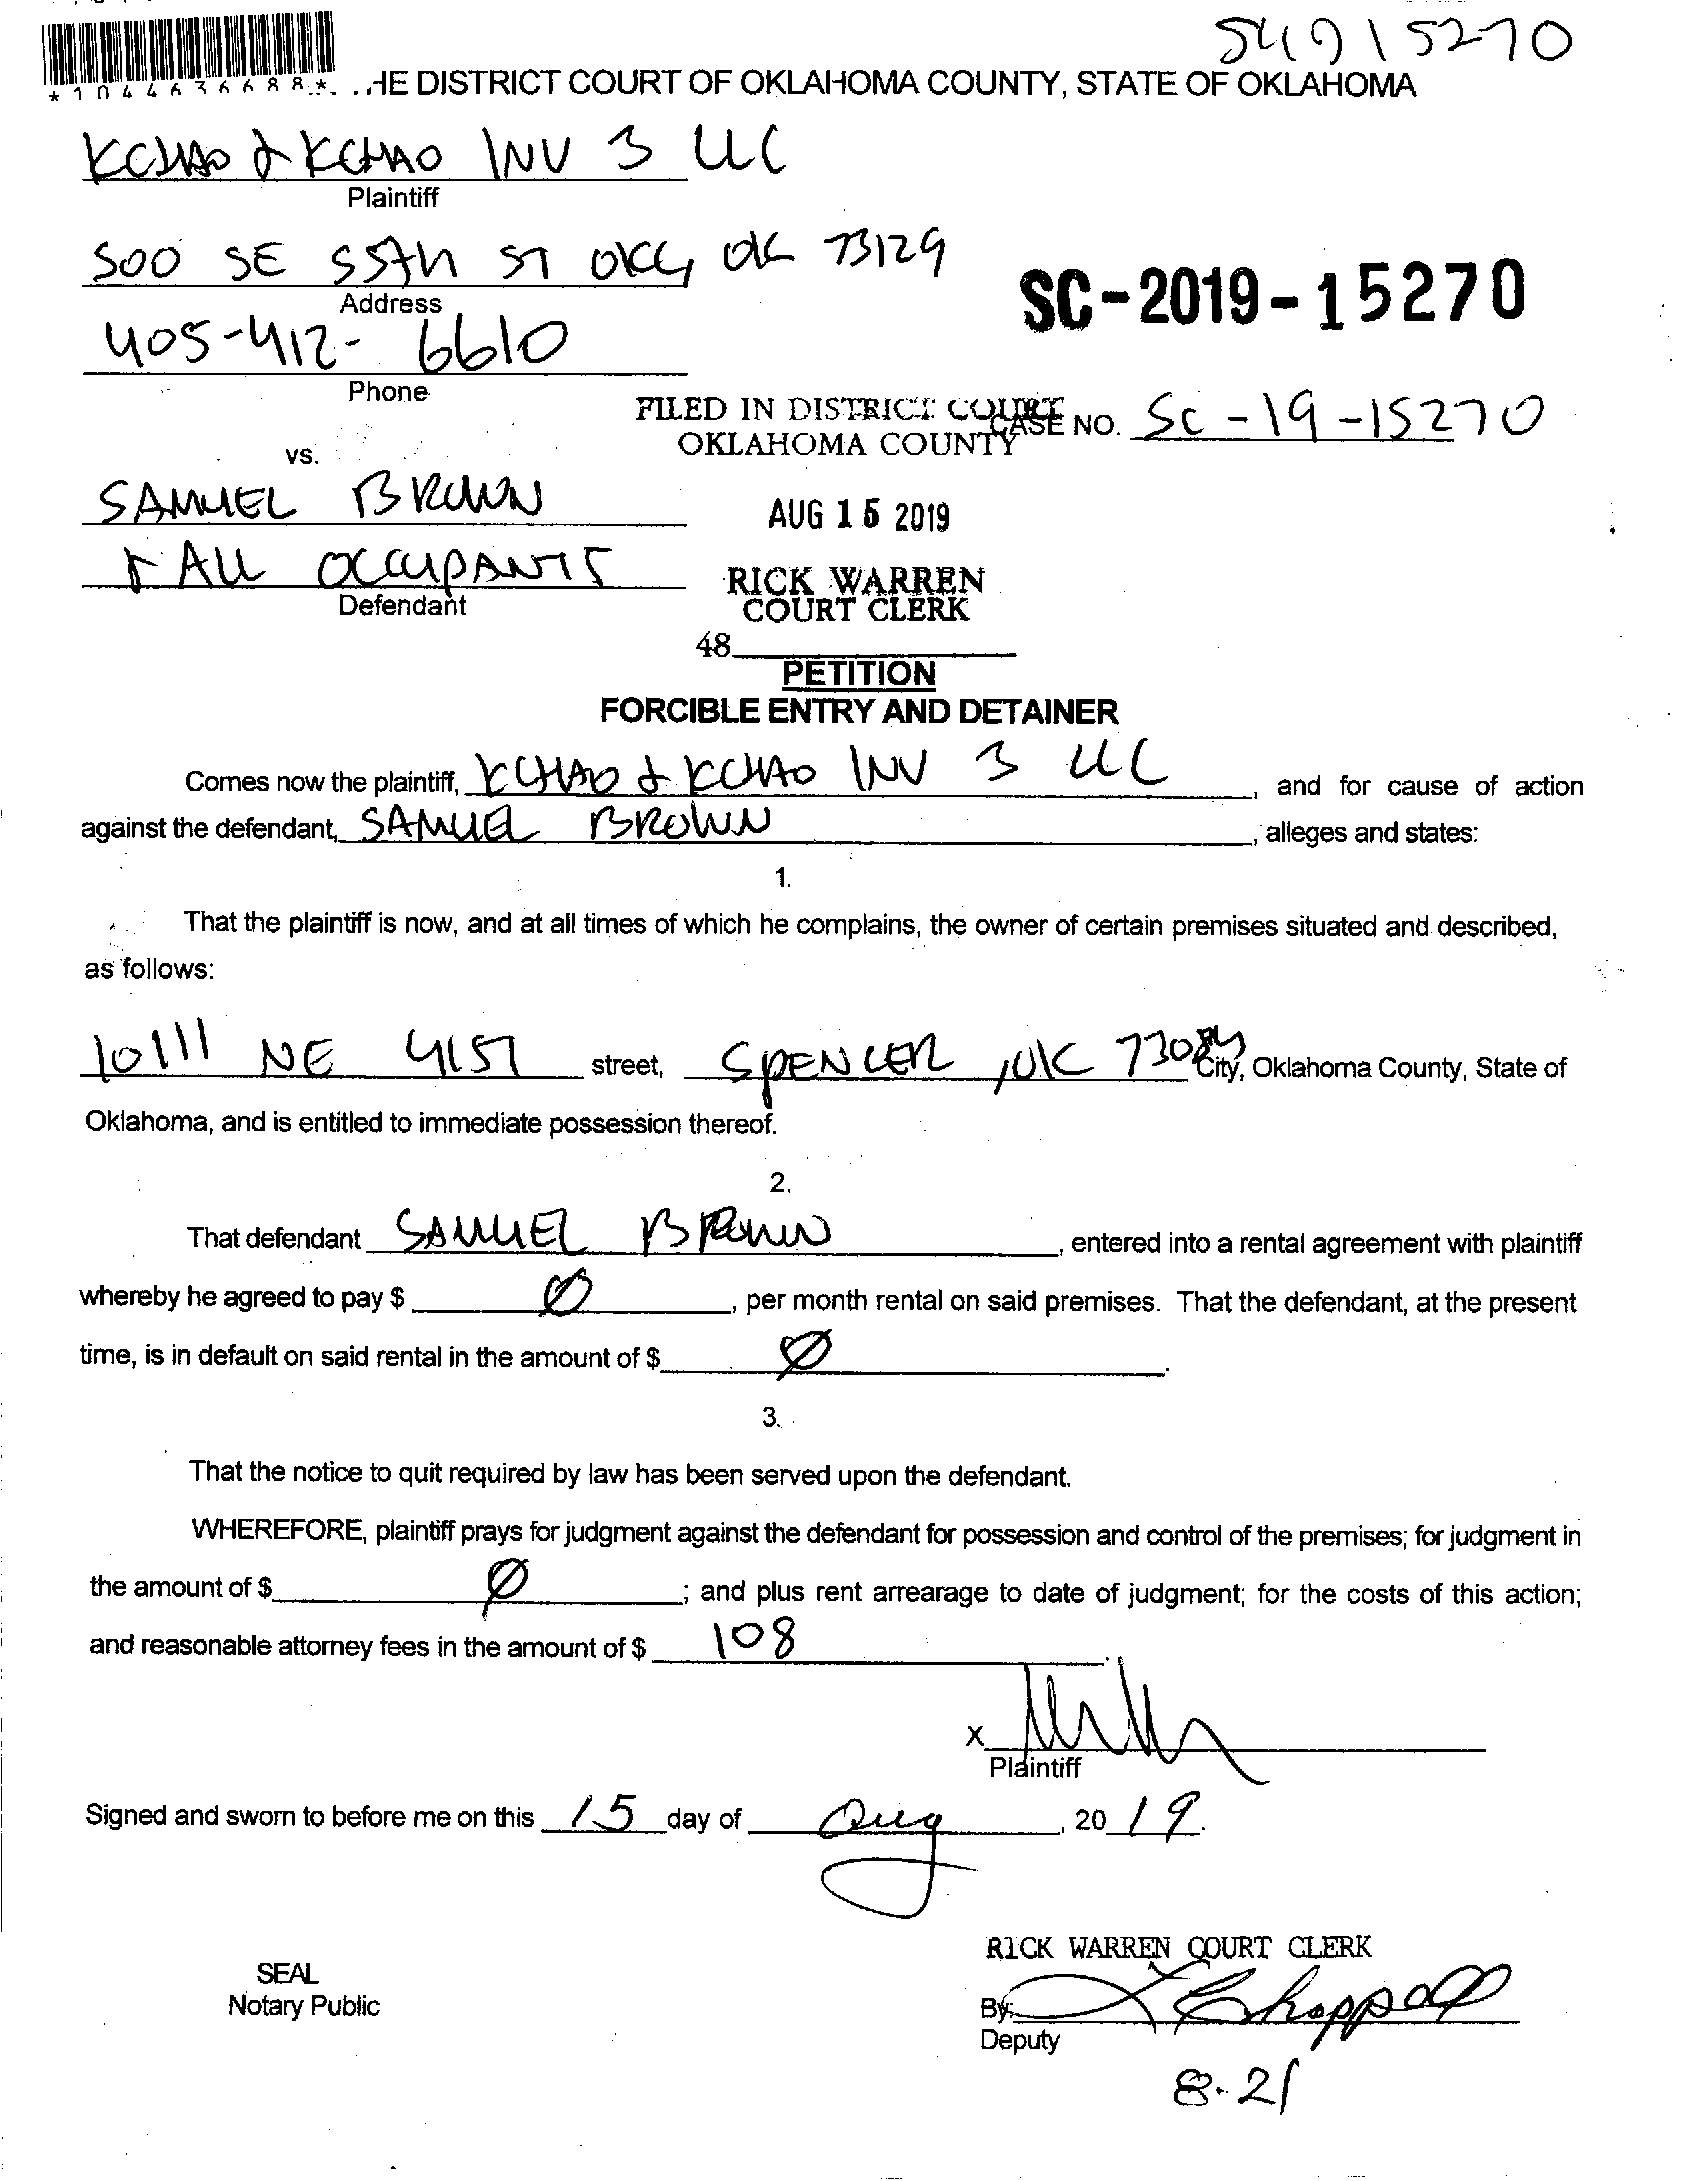 SC1915270
*1044636688*
HE DISTRICT COURT OF OKLAHOMA COUNTY, STATE OF OKLAHOMA
KCHAO & KCHAO INV 3 LLC
Plaintiff
500 SE 55th ST OKC, OK 73129
Address
SC-2019-15270
405-412-6610
Phone
FILED IN DISTRICT COURT
OKLAHOMA COUNTY
CASE NO. SC-19-15270
vs.
SAMUEL BROWN
AUG 15 2019
& ALL OCCUPANTS
Defendant
RICK WARREN
COURT CLERK
48
PETITION
FORCIBLE ENTRY AND DETAINER
Comes now the plaintiff, KCHAO & KCHAO INV 3 LLC, and for cause of action
against the defendant, SAMUEL BROWN, alleges and states:
1.
That the plaintiff is now, and at all times of which he complains, the owner of certain premises situated and described,
as follows:
10111 NE 41ST street, SPENCER, OK 73084 City, Oklahoma County, State of
Oklahoma, and is entitled to immediate possession thereof.
2.
That defendant SAMUEL BROWN, entered into a rental agreement with plaintiff
whereby he agreed to pay $ Ø, per month rental on said premises. That the defendant, at the present
time, is in default on said rental in the amount of $ Ø.
3.
That the notice to quit required by law has been served upon the defendant.
WHEREFORE, plaintiff prays for judgment against the defendant for possession and control of the premises; for judgment in
the amount of $ Ø; and plus rent arrearage to date of judgment; for the costs of this action;
and reasonable attorney fees in the amount of $ 108.
X
Plaintiff
Signed and sworn to before me on this 15 day of Aug, 20 19.
RICK WARREN COURT CLERK
SEAL
Notary Public
By: Chappell
Deputy
8-21